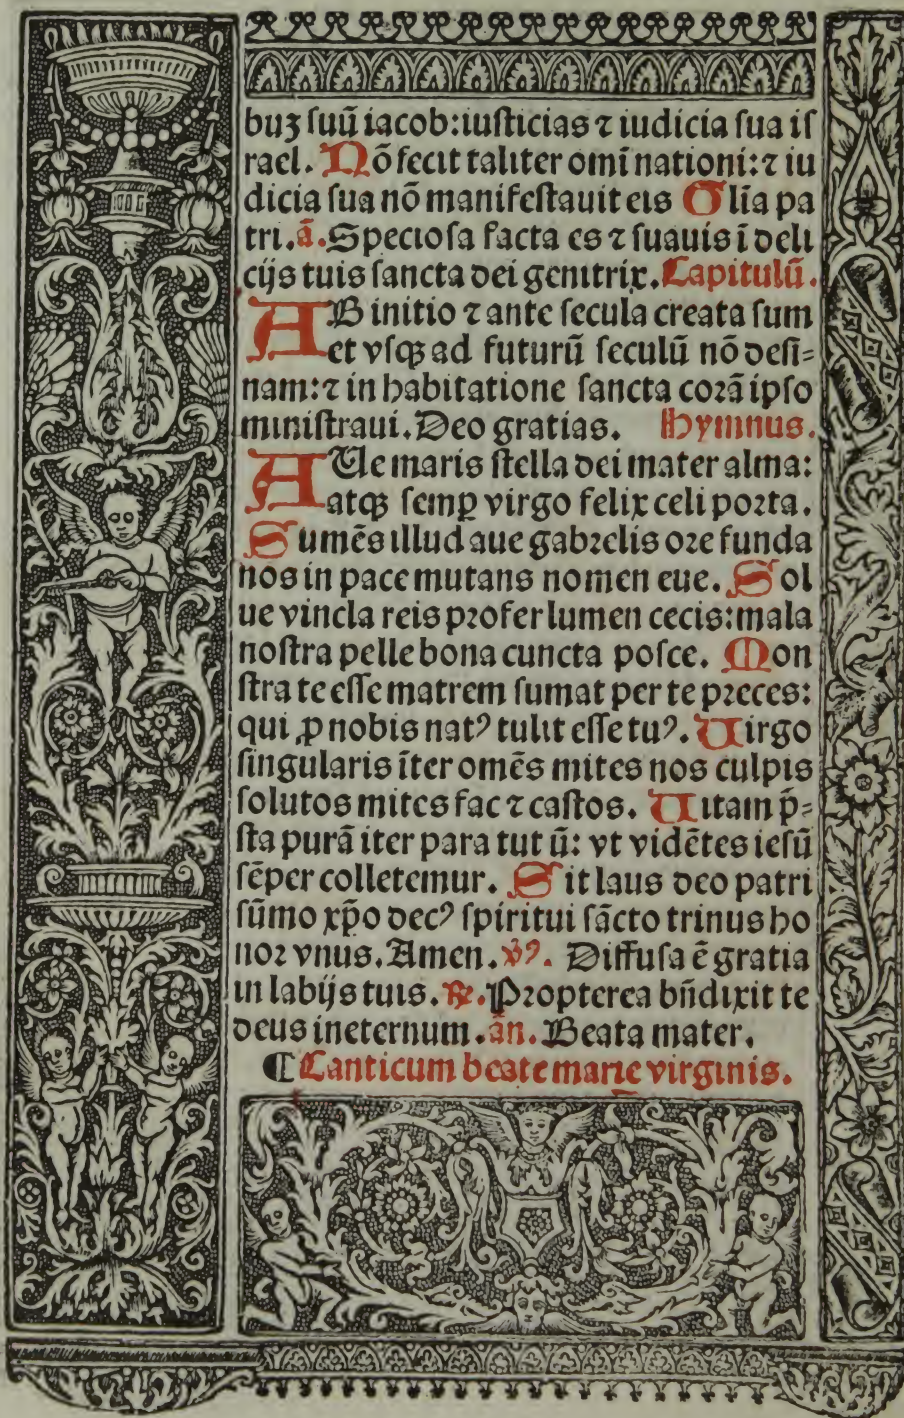 buꝫ ſuū iacob:iuſticias ⁊ iudicia ſua iſ
rael. Nō fecit taliter omī nationi:⁊ iu
dicia ſua nō manifeſtauit eis Glīa pa
tri.ā.Specioſa facta es ⁊ ſuauis ī deli
cijs tuis ſancta dei genitrix.Capitulū.
AB initio ⁊ ante ſecula creata ſum
et vſqꝫ ad futurū ſeculū nō deſi⸗
nam:⁊ in habitatione ſancta coꝛā ipſo
miniſtraui.Deo gratias. Hymnus.
AUe maris ſtella dei mater alma:
atqꝫ ſemꝑ virgo felix celi poꝛta.
Sumēs illud aue gabꝛelis oꝛe funda
nos in pace mutans nomen eue. Sol
ue vincla reis pꝛofer lumen cecis:mala
noſtra pelle bona cuncta poſce. Mon
ſtra te eſſe matrem ſumat per te pꝛeces:
qui ꝓ nobis natꝰ tulit eſſe tuꝰ. Uirgo
ſingularis īter omēs mites nos culpis
ſolutos mites fac ⁊ caſtos. Uitam p̄⸗
ſta purā iter para tut ū: vt vidētes ieſū
ſēper colletemur. Sit laus deo patri
ſūmo xp̄o decꝰ ſpiritui ſācto trinus ho
noꝛ vnus.Amen.v̉ꝰ. Diffuſa ē gratia
in labijs tuis.℞.Pꝛopterea bn̄dixit te
deus ineternum.an̄.Beata mater.
¶Canticum beate marie virginis.